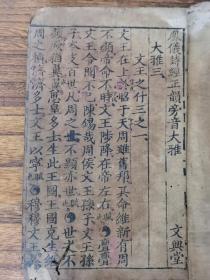 儀詩經正韻旁音大雅 文興堂
大雅三
文王之什三之一
文王在上於昭于天周雖舊邦其命維新有周
不顯帝命不時文王陟降在帝左右亹亹
文王令聞不已陳錫哉周侯文王孫子文王孫
子本支百世凡周之士不顯亦世世之不
顯厥猶翼翼思皇多士生此王國王國克生維
周之楨濟濟多士文王以寧穆穆文王